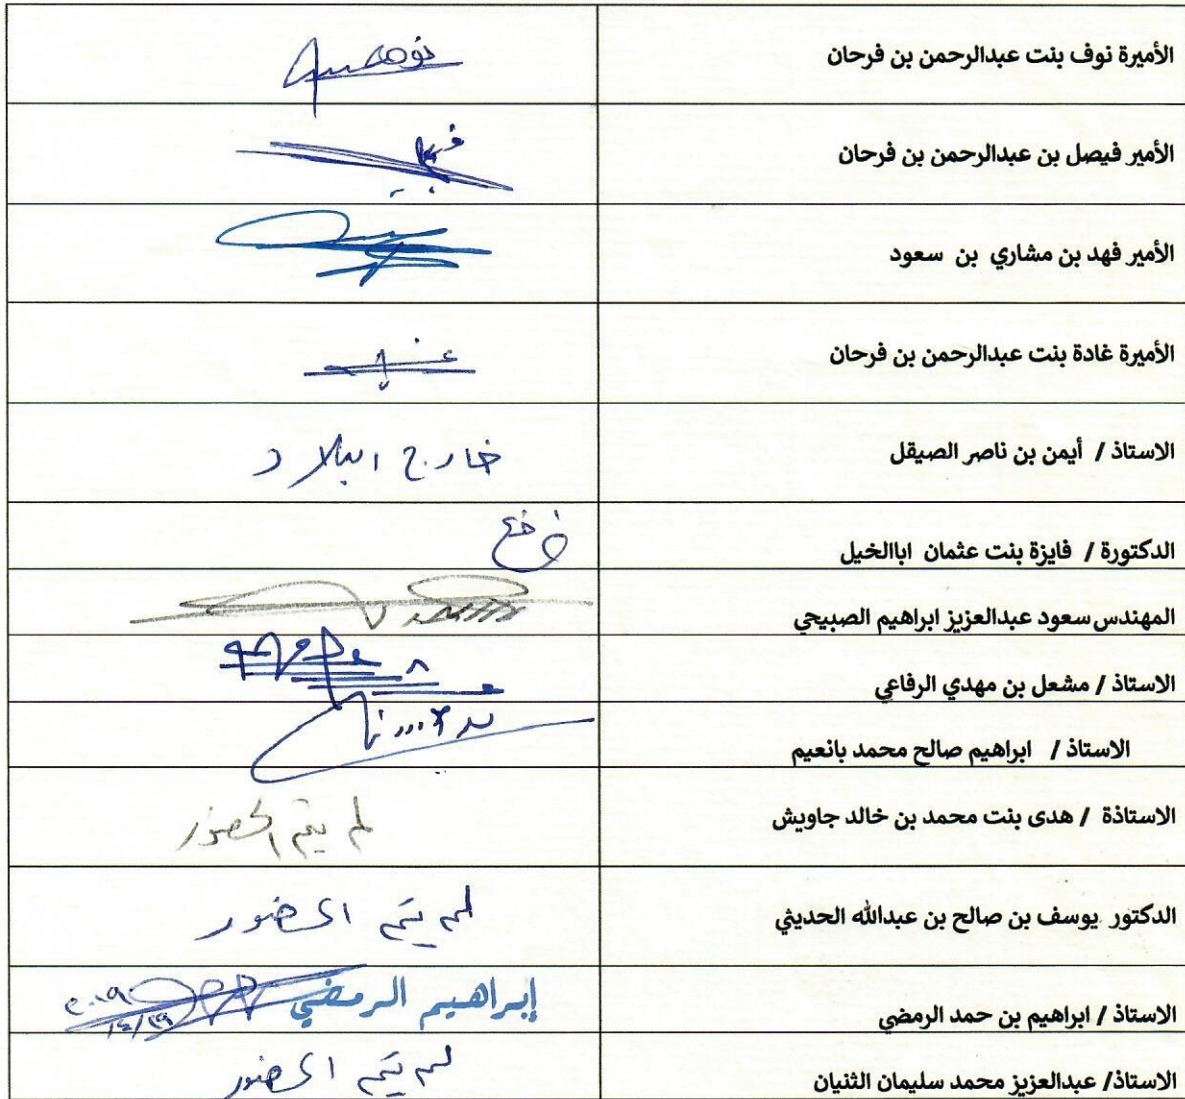 الأميرة نوف بنت عبدالرحمن بن فرحان
الأمير فيصل بن عبدالرحمن بن فرحان
الأمير فهد بن مشاري بن سعود
الأميرة غادة بنت عبدالرحمن بن فرحان
الاستاذ / أيمن بن ناصر الصيقل خارج البلاد
الدكتورة / فايزة بنت عثمان اباالخيل
المهندس سعود عبدالعزيز ابراهيم الصبيحي
الاستاذ / مشعل بن مهدي الرفاعي
الاستاذ / ابراهيم صالح محمد بانعيم
الاستاذة / هدى بنت محمد بن خالد جاويش لم يتم الحضور
الدكتور يوسف بن صالح بن عبدالله الحديثي لم يتم الحضور
الاستاذ / ابراهيم بن حمد الرمضي إبراهيم الرمضي
الاستاذ/ عبدالعزيز محمد سليمان الثنيان لم يتم الحضور